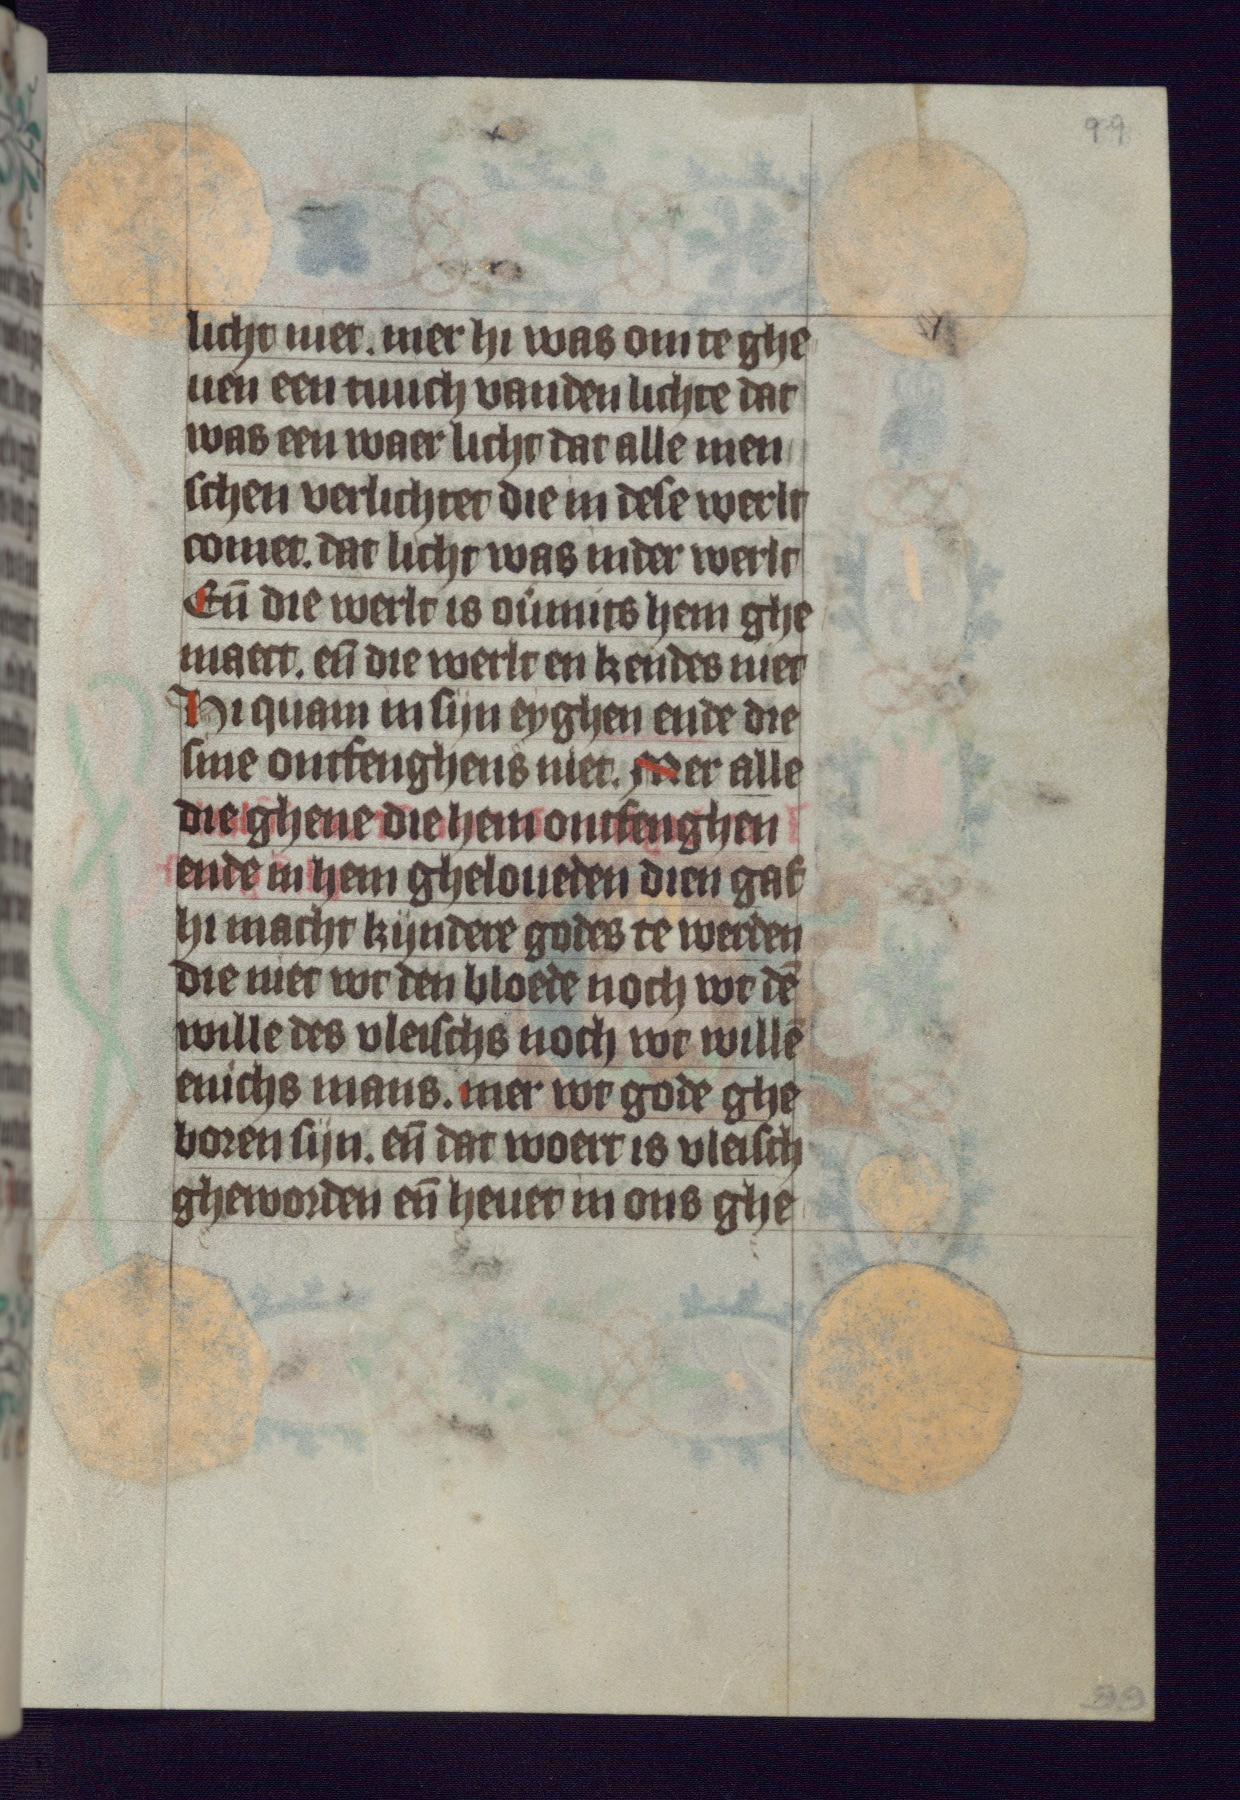 99
licht niet. mer hi was om te ghe
uen een tuuch vanden lichte dat
was een waer licht dat alle men
schen verlichtet die in dese werlt
comet. dat licht was inder werlt
Eñ die werlt is ou̇mits hem ghe
maect. eñ die werlt en kendes niet
Hi quam in sijn eyghen ende die
sine ontfenghens niet. Mer alle
die ghene die hem ontfenghen
ende in hem gheloueden dien gaf
hi macht kijndere godes te werden
die niet wt den bloede noch wt dē
wille des vleischs noch wt willē
enichs mans. mer wt gode ghe
boren sijn. eñ dat woert is vleisch
gheworden eñ heuet in ons ghe